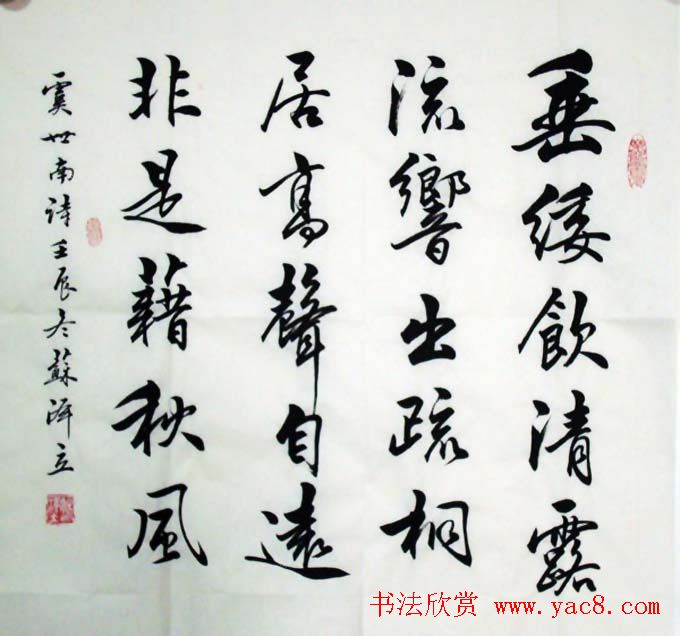 垂緌飲清露
流響出疏桐
居高聲自遠
非是藉秋風
虞世南詩壬辰冬蘇澤立
书法欣赏 www.yac8.com